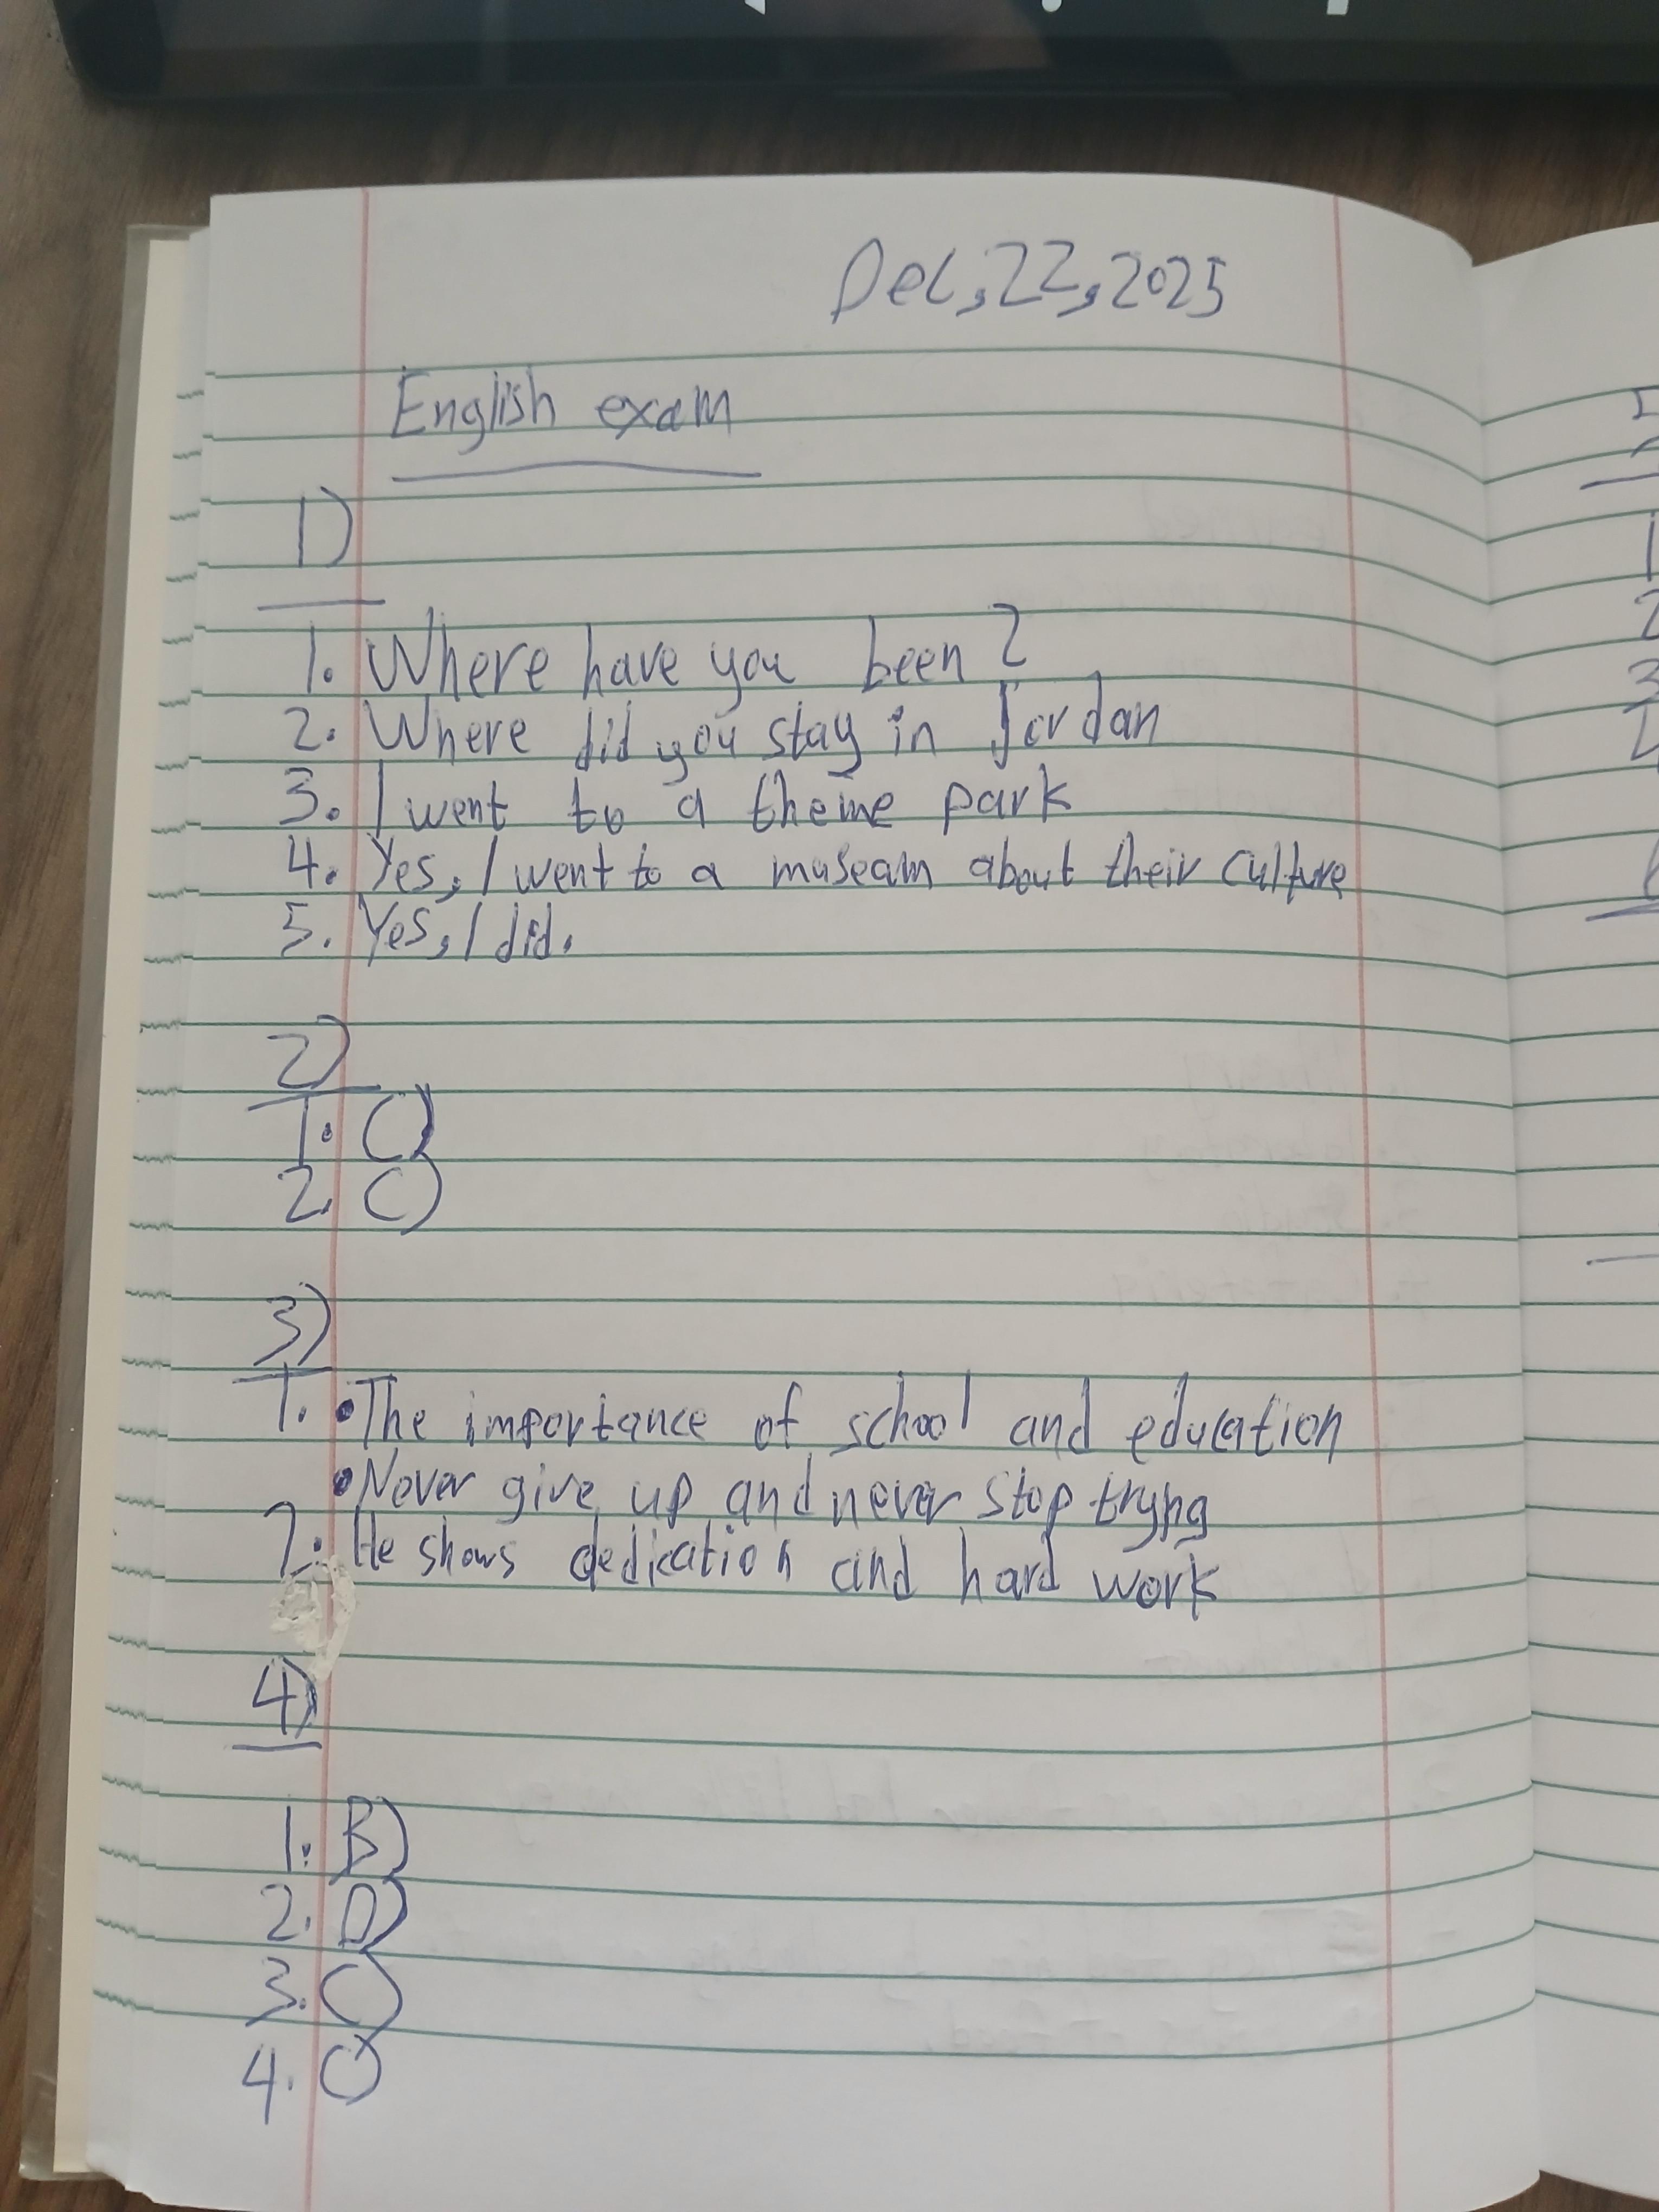 Dec,22,2025
English exam
1)
1. Where have you been?
2. Where did you stay in Jordan
3. I went to a theme park
4. Yes, I went to a museam about their culture
5. Yes, I did.
2)
1. C)
2. C)
3)
1. •The importance of school and education
•Never give up and never stop tryng
2. He shows dedication and hard work
4)
1. B)
2. D)
3. C)
4. C)